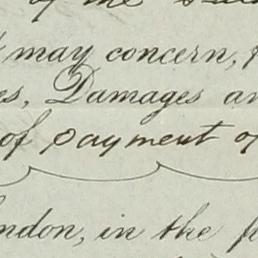 of the
may concern,
es, Damages an
of payment of
ndon, in the